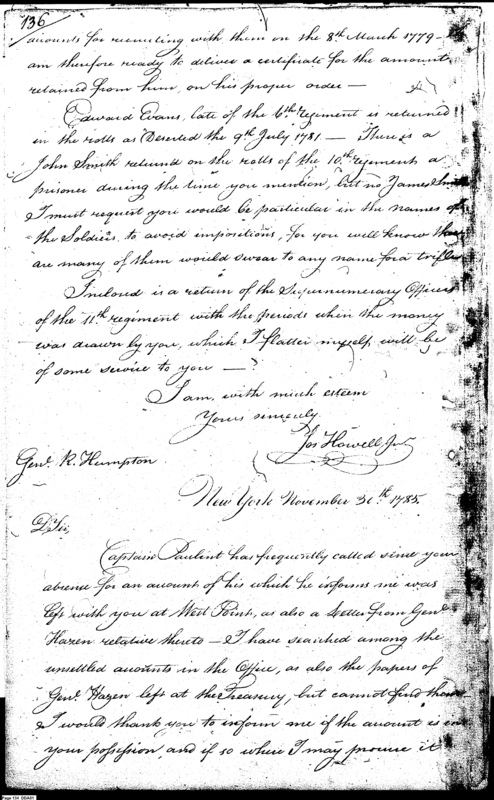 136
accounts for recruiting with them on the 8th March 1779 -
am therefore ready to deliver a certificate for the amount
retained from him, on his proper order —
Edward Evans, late of the 6th regiment is returned
in the rolls as Deserted the 9th July 1781 — There is a
John Smith returned on the rolls of the 10th regiment a
prisoner during the time you mention, but no James Smith
I must request you would be particular in the names of
the Soldiers, to avoid impositions, for you well know there
are many of them would swear to any name for a trifle
Inclosed is a return of the Supernumerary Officers
of the 11th regiment with the periods when the money
was drawn by you, which I flatter myself will be
of some service to you —
I am, with much esteem
Yours sincerely
Jos Howell Jr
Genl. R. Humpton
New York November 30th 1785.
Dr Sir,
Captain Paulint has frequently called since your
absence for an amount of his which he informs me was
left with you at West Point, as also a Letter from Genl.
Hazen relative thereto — I have searched among the
unsettled accounts in the Office, as also the papers of
Genl. Hazen left at the Treasury, but cannot find them
I would thank you to inform me if the amount is in
your possession and if so where I may procure it
Page 134